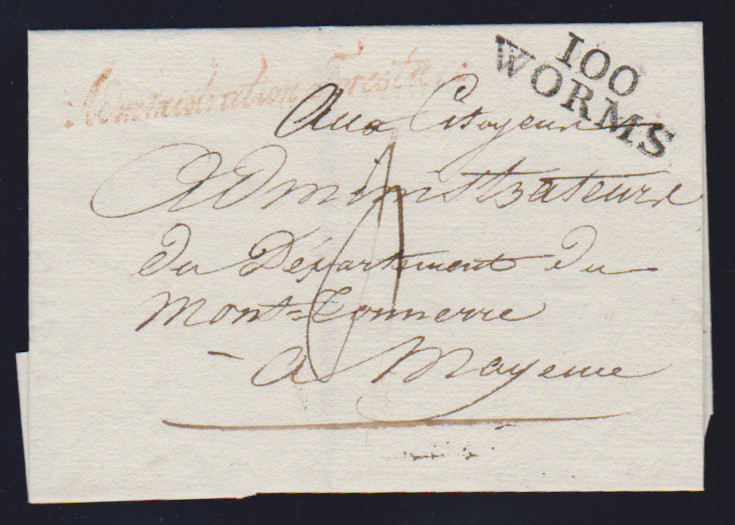 Administration Forestière
100
WORMS
Aux Citoyens
Administrateurs
du Département du
Mont=Tonnerre
- a Mayence